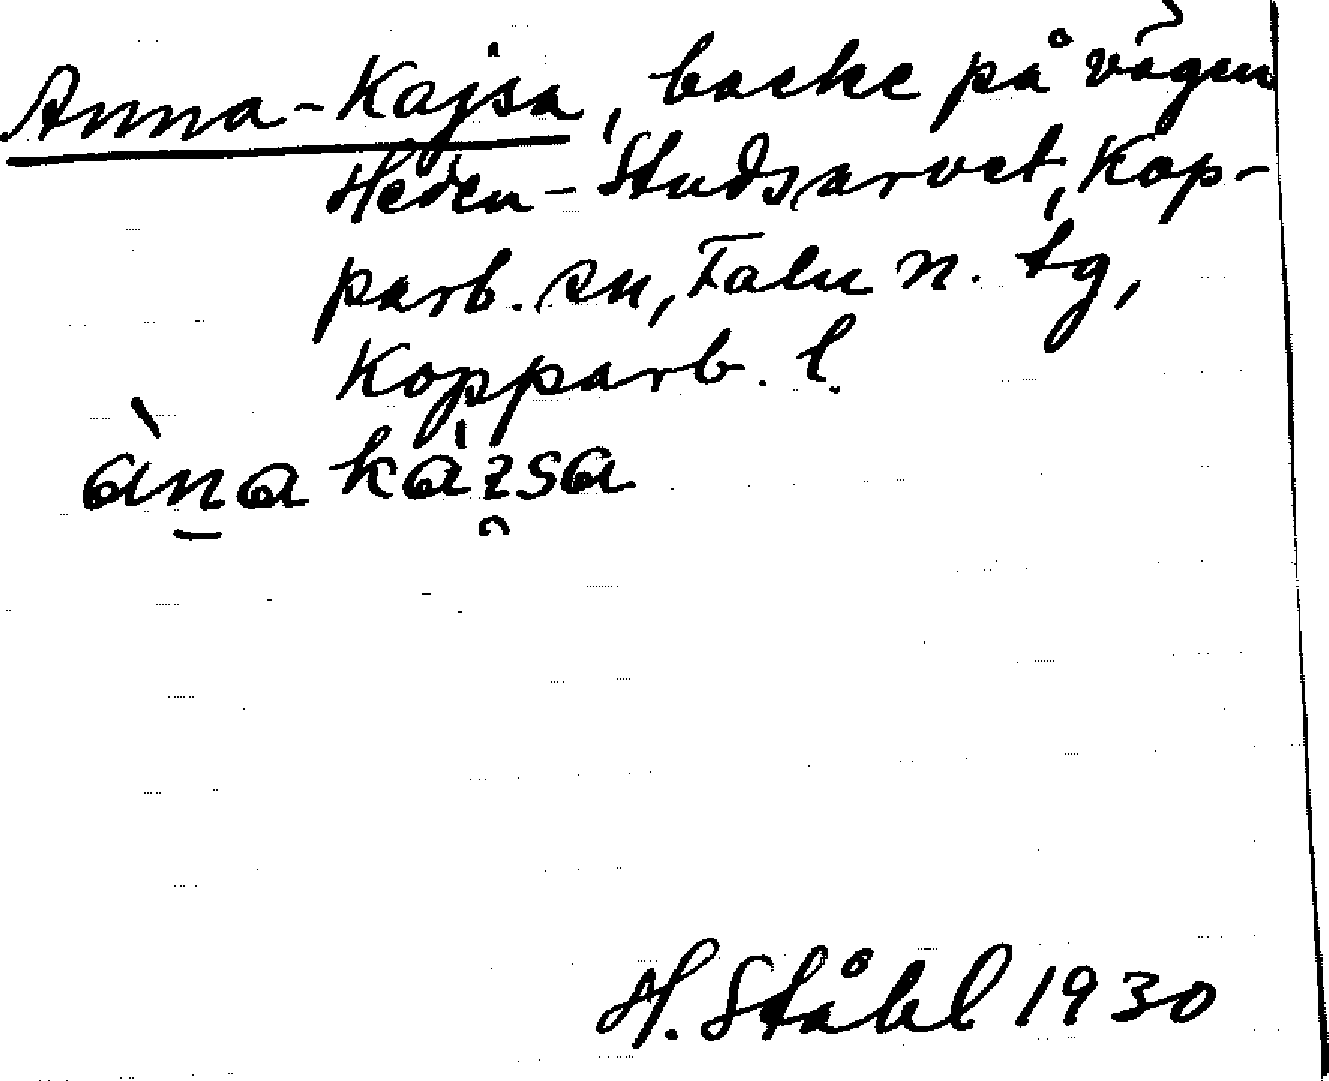 Anna-Kajsa, backe på vägen
Heden - Studsarvet, Kop-
parb. sn, Falu n. tg,
Kopparb. l.
àna kàɪsa
H. Ståhl 1930